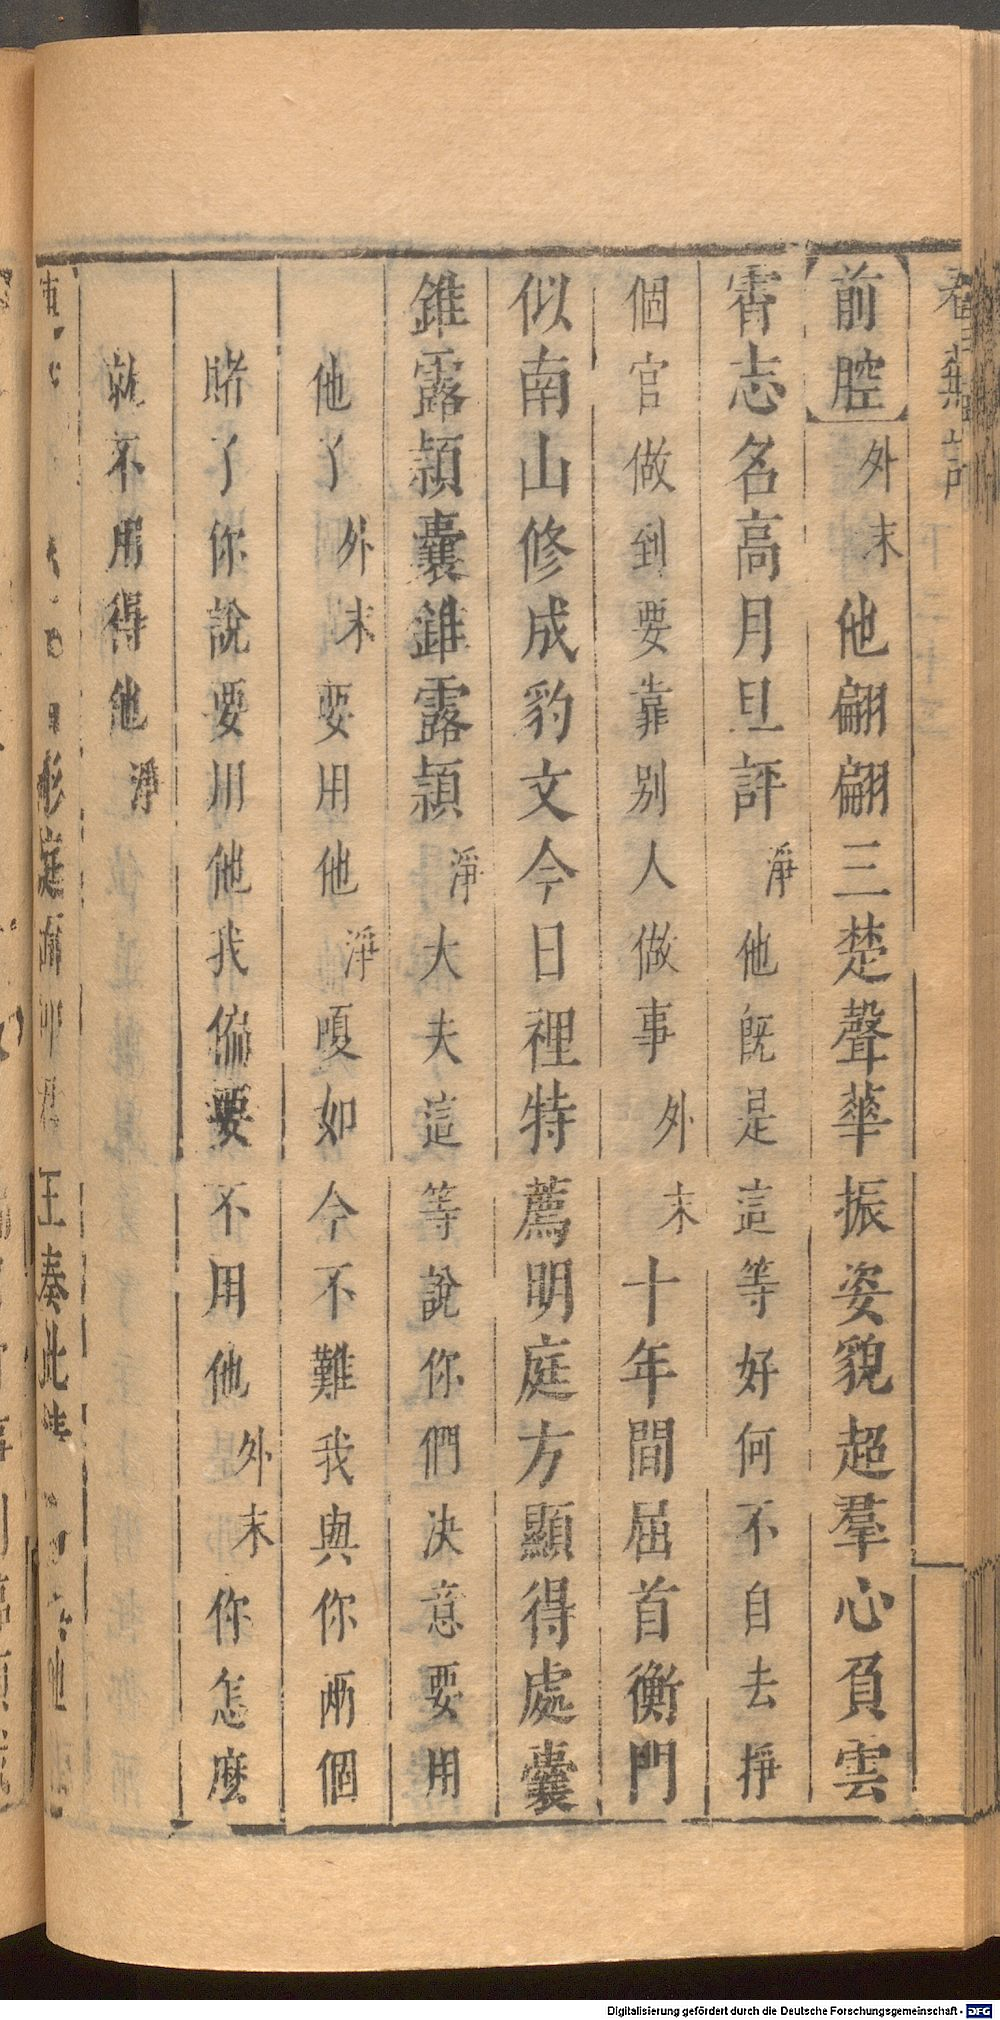 前腔外末他翩翩三楚聲華振姿貌超羣心負雲
霄志名高月旦評淨他既是這等好何不自去掙
個官做到要靠別人做事外末十年間屈首衡門
似南山修成豹文今日裡特薦明庭方顯得處囊
錐露頴囊錐露頴淨大夫這等說你們決意要用
他了外末要用他淨嗄如今不難我與你兩個
賭了你說要用他我偏要不用他外末你怎麼
就不用得他淨
王奏此
Digitalisierung gefördert durch die Deutsche Forschungsgemeinschaft - DFG